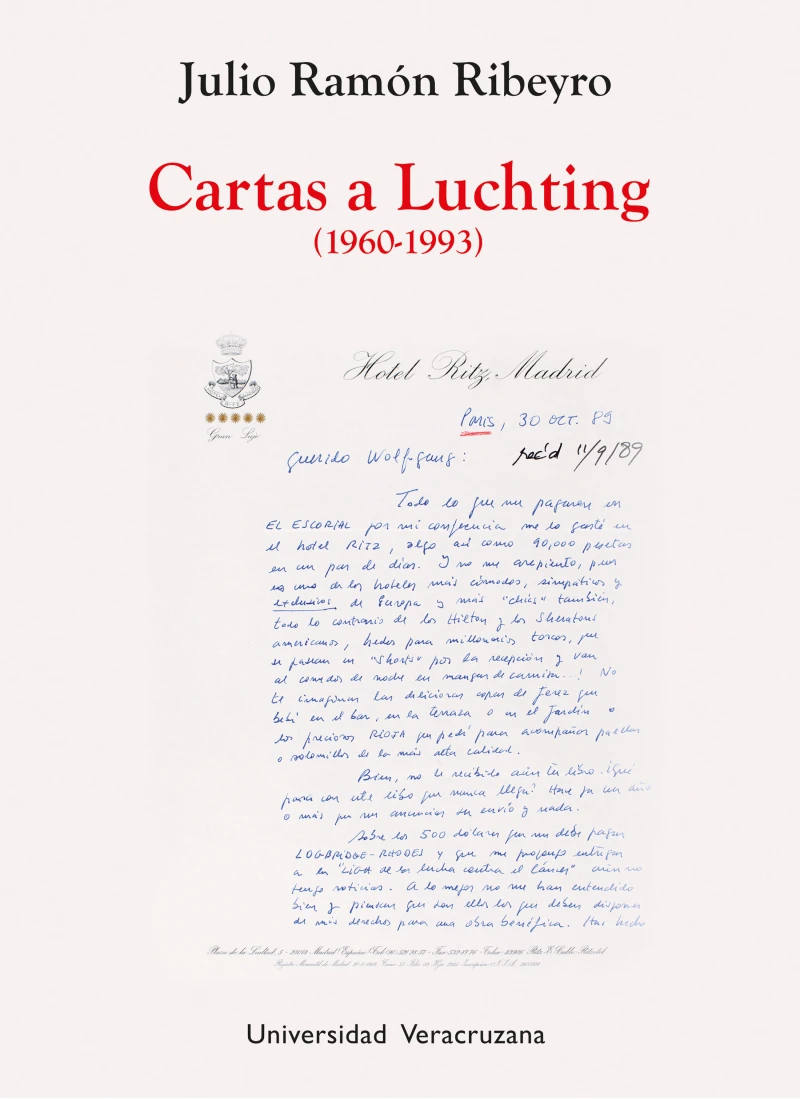 Julio Ramón Ribeyro
Cartas a Luchting
(1960-1993)
Hotel Ritz, Madrid
Gran Lujo
París, 30 OCT. 89
Querido Wolfgang:
rec'd 11/9/89
Todo lo que me pagaron en
EL ESCORIAL por mi conferencia me lo gasté en
el hotel RITZ, algo así como 90,000 pesetas
en un par de días. Y no me arrepiento, pues
es uno de los hoteles más cómodos, simpáticos y
exclusivos de Europa y más "chics" también,
todo lo contrario de los Hilton y los Sheratons
americanos, hechos para millonarios toscos, que
se pasean en "Shorts" por la recepción y van
al comedor de noche en mangas de camisa...! No
te imaginas las deliciosas copas de Jerez que
bebí en el bar, en la terraza o en el Jardín o
los preciosos RIOJA que pedí para acompañar paellas
o solomillos de la más alta calidad.
Bien, no he recibido aún tu libro. ¿Qué
pasa con este libro que nunca llega? Hace ya un año
o más que me anuncias su envío y nada.
Sobre los 500 dólares que me debe pagar
LOGBRIDGE-RHODES y que me propongo entregar
a la "LIGA de la lucha contra el Cáncer" aún no
tengo noticias. A lo mejor no me han entendido
bien y piensan que son ellos los que deben disponer
de mis derechos para una obra benéfica. Has hecho
Plaza de la Lealtad, 5 - 28014 Madrid España
Universidad Veracruzana